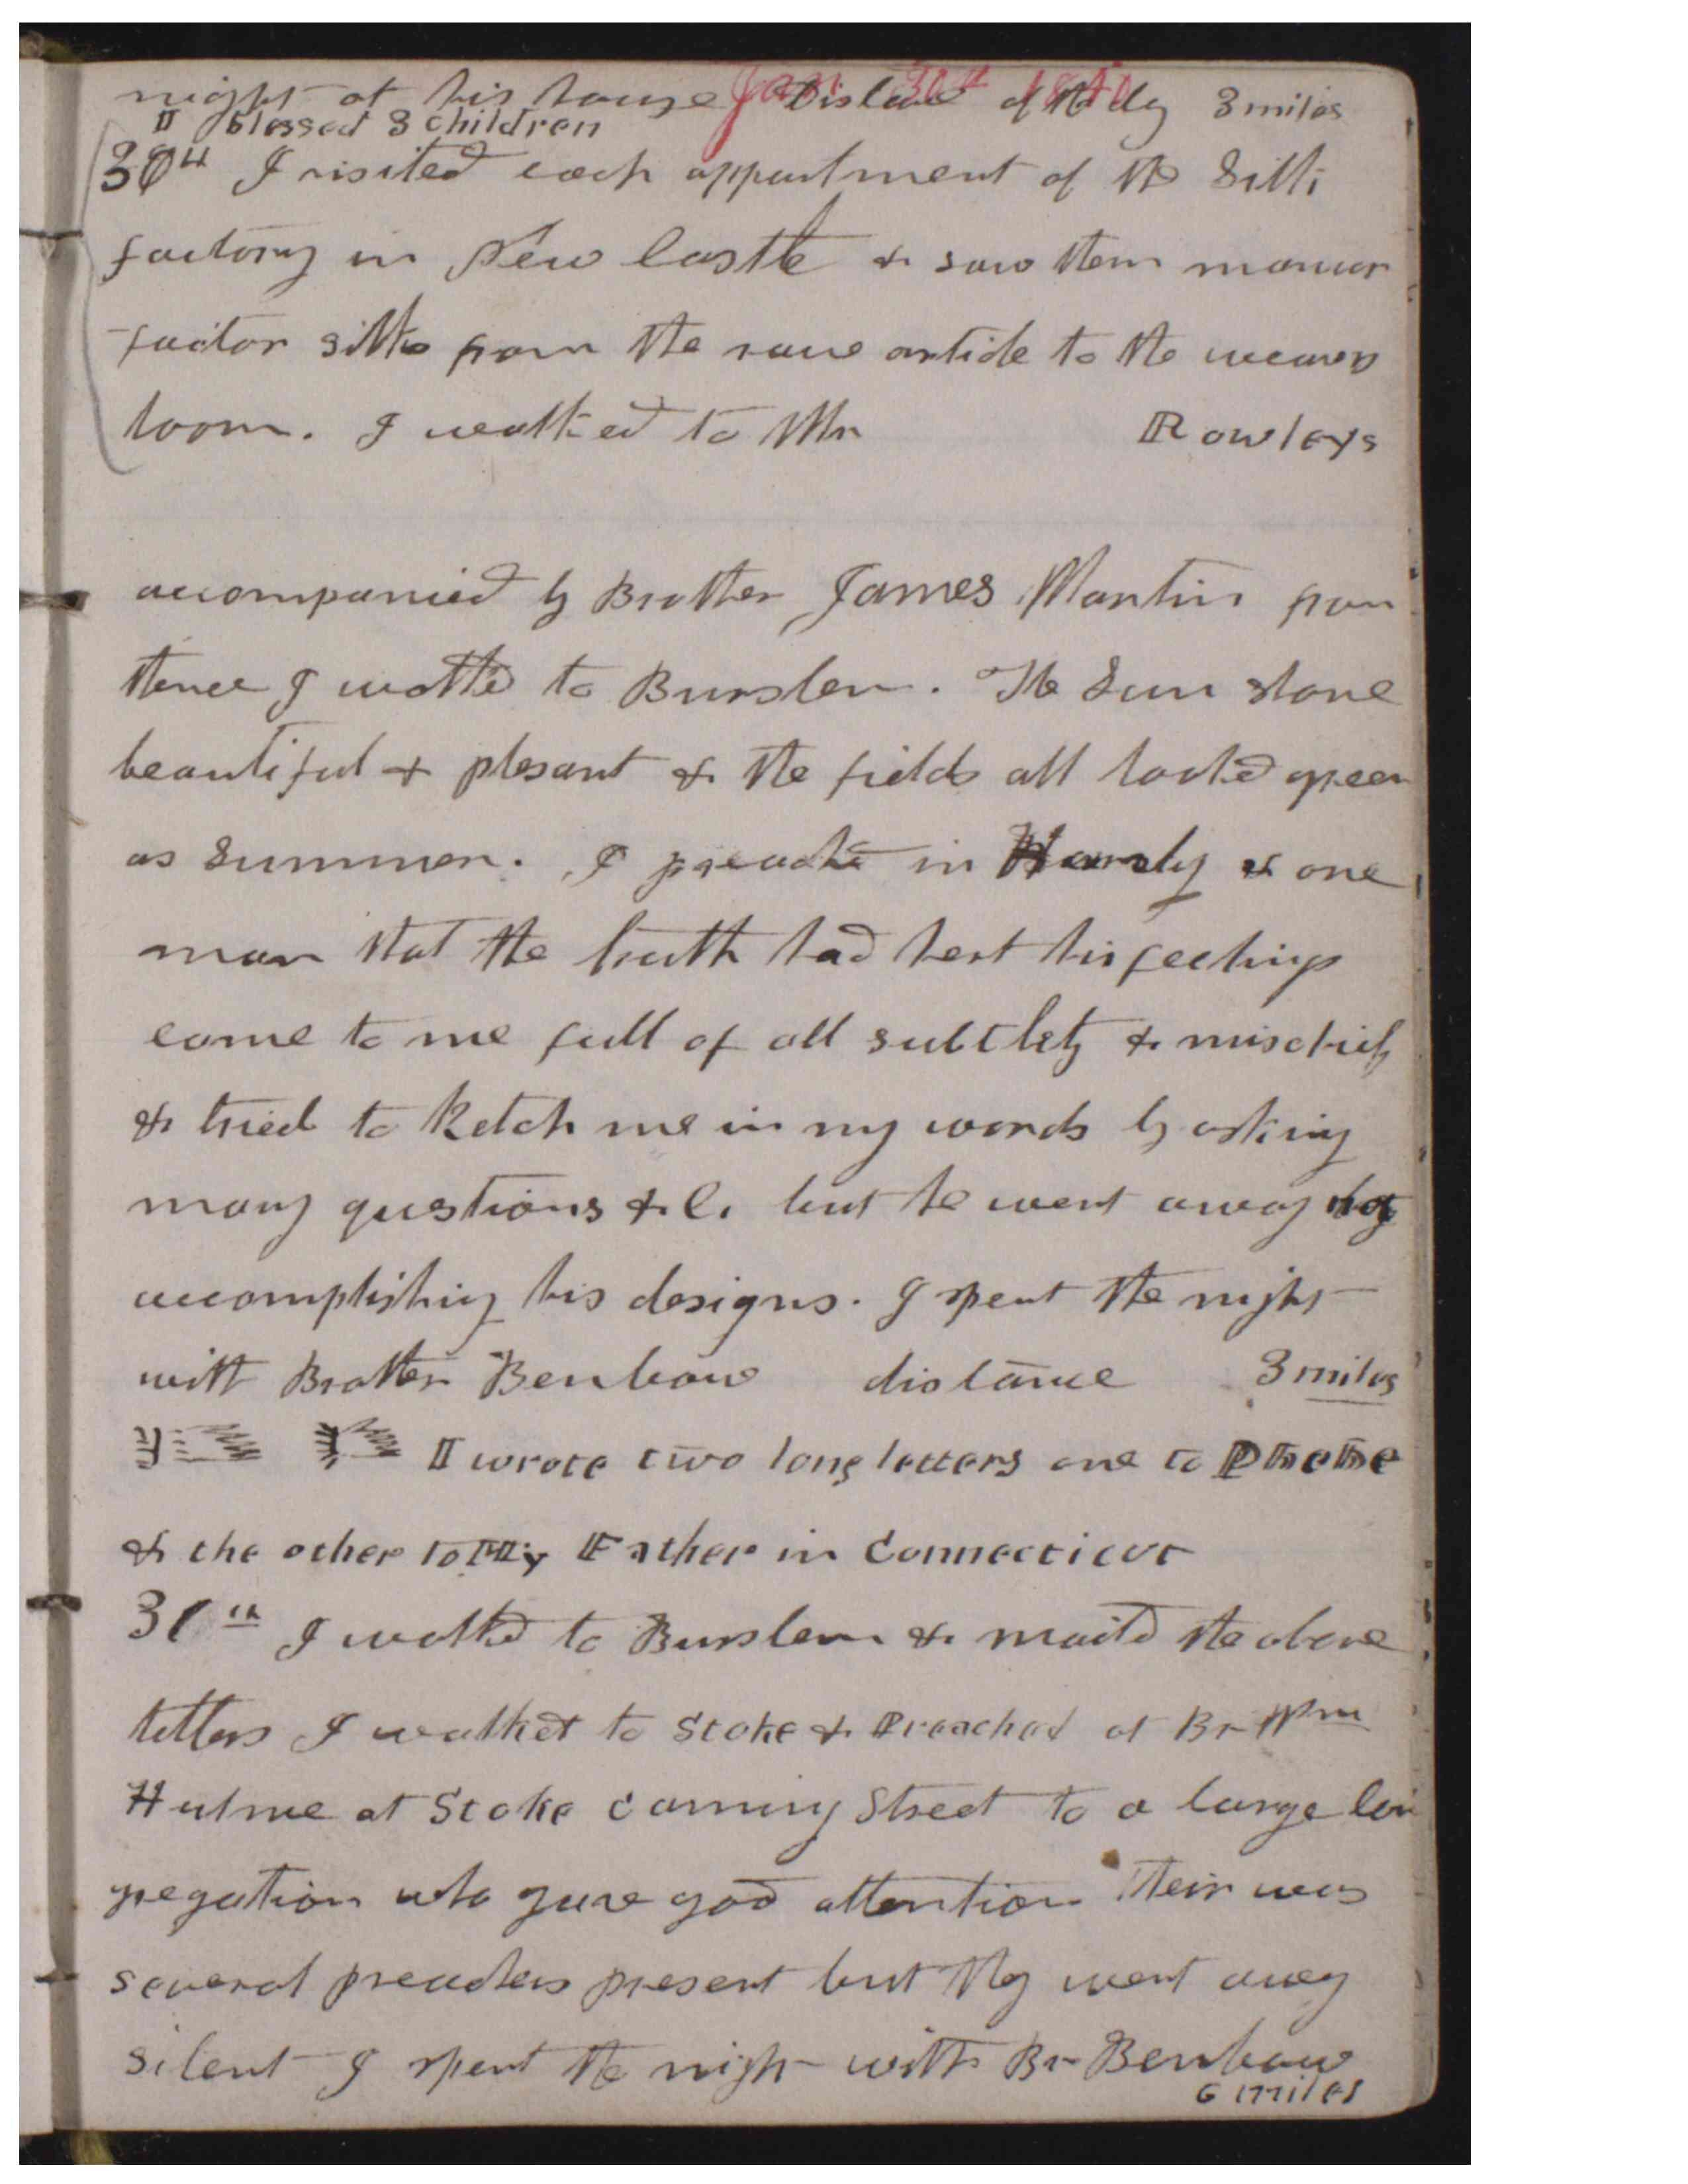 night at his house Distance of the day 3 miles
Jan. 30th 1840
I blessed 3 children
30th I visited each appartment of the Silk
factory in New Castle & saw them manuer
factor silks from the raw article to the weavers
loom. I walked to Mr Rowleys
accompanied by Brother James Martin from
thence I walked to Burslem. The Sun shone
beautiful & plesant & the fields all looked green
as Summer. I preached in Hanly & one
man that the truth had hert his feelings
came to me full of all subtlety & mischief
& tried to Ketch me in my words by asking
many questions &c. but he went away not
accomplishing his designs. I spent the night
with Brother Benbow distance 3 miles
I wrote two long letters one to Phebe
& the other to My Father in Connecticut
31st I walked to Burslem & mailed the above
letters I walked to Stoke & Preached at Br Wm
Hulme at Stoke Canning Street to a large Con
gregation who gave good attention Their was
several preachers present but they went away
silent I spent the night with Br Benbow
6 miles